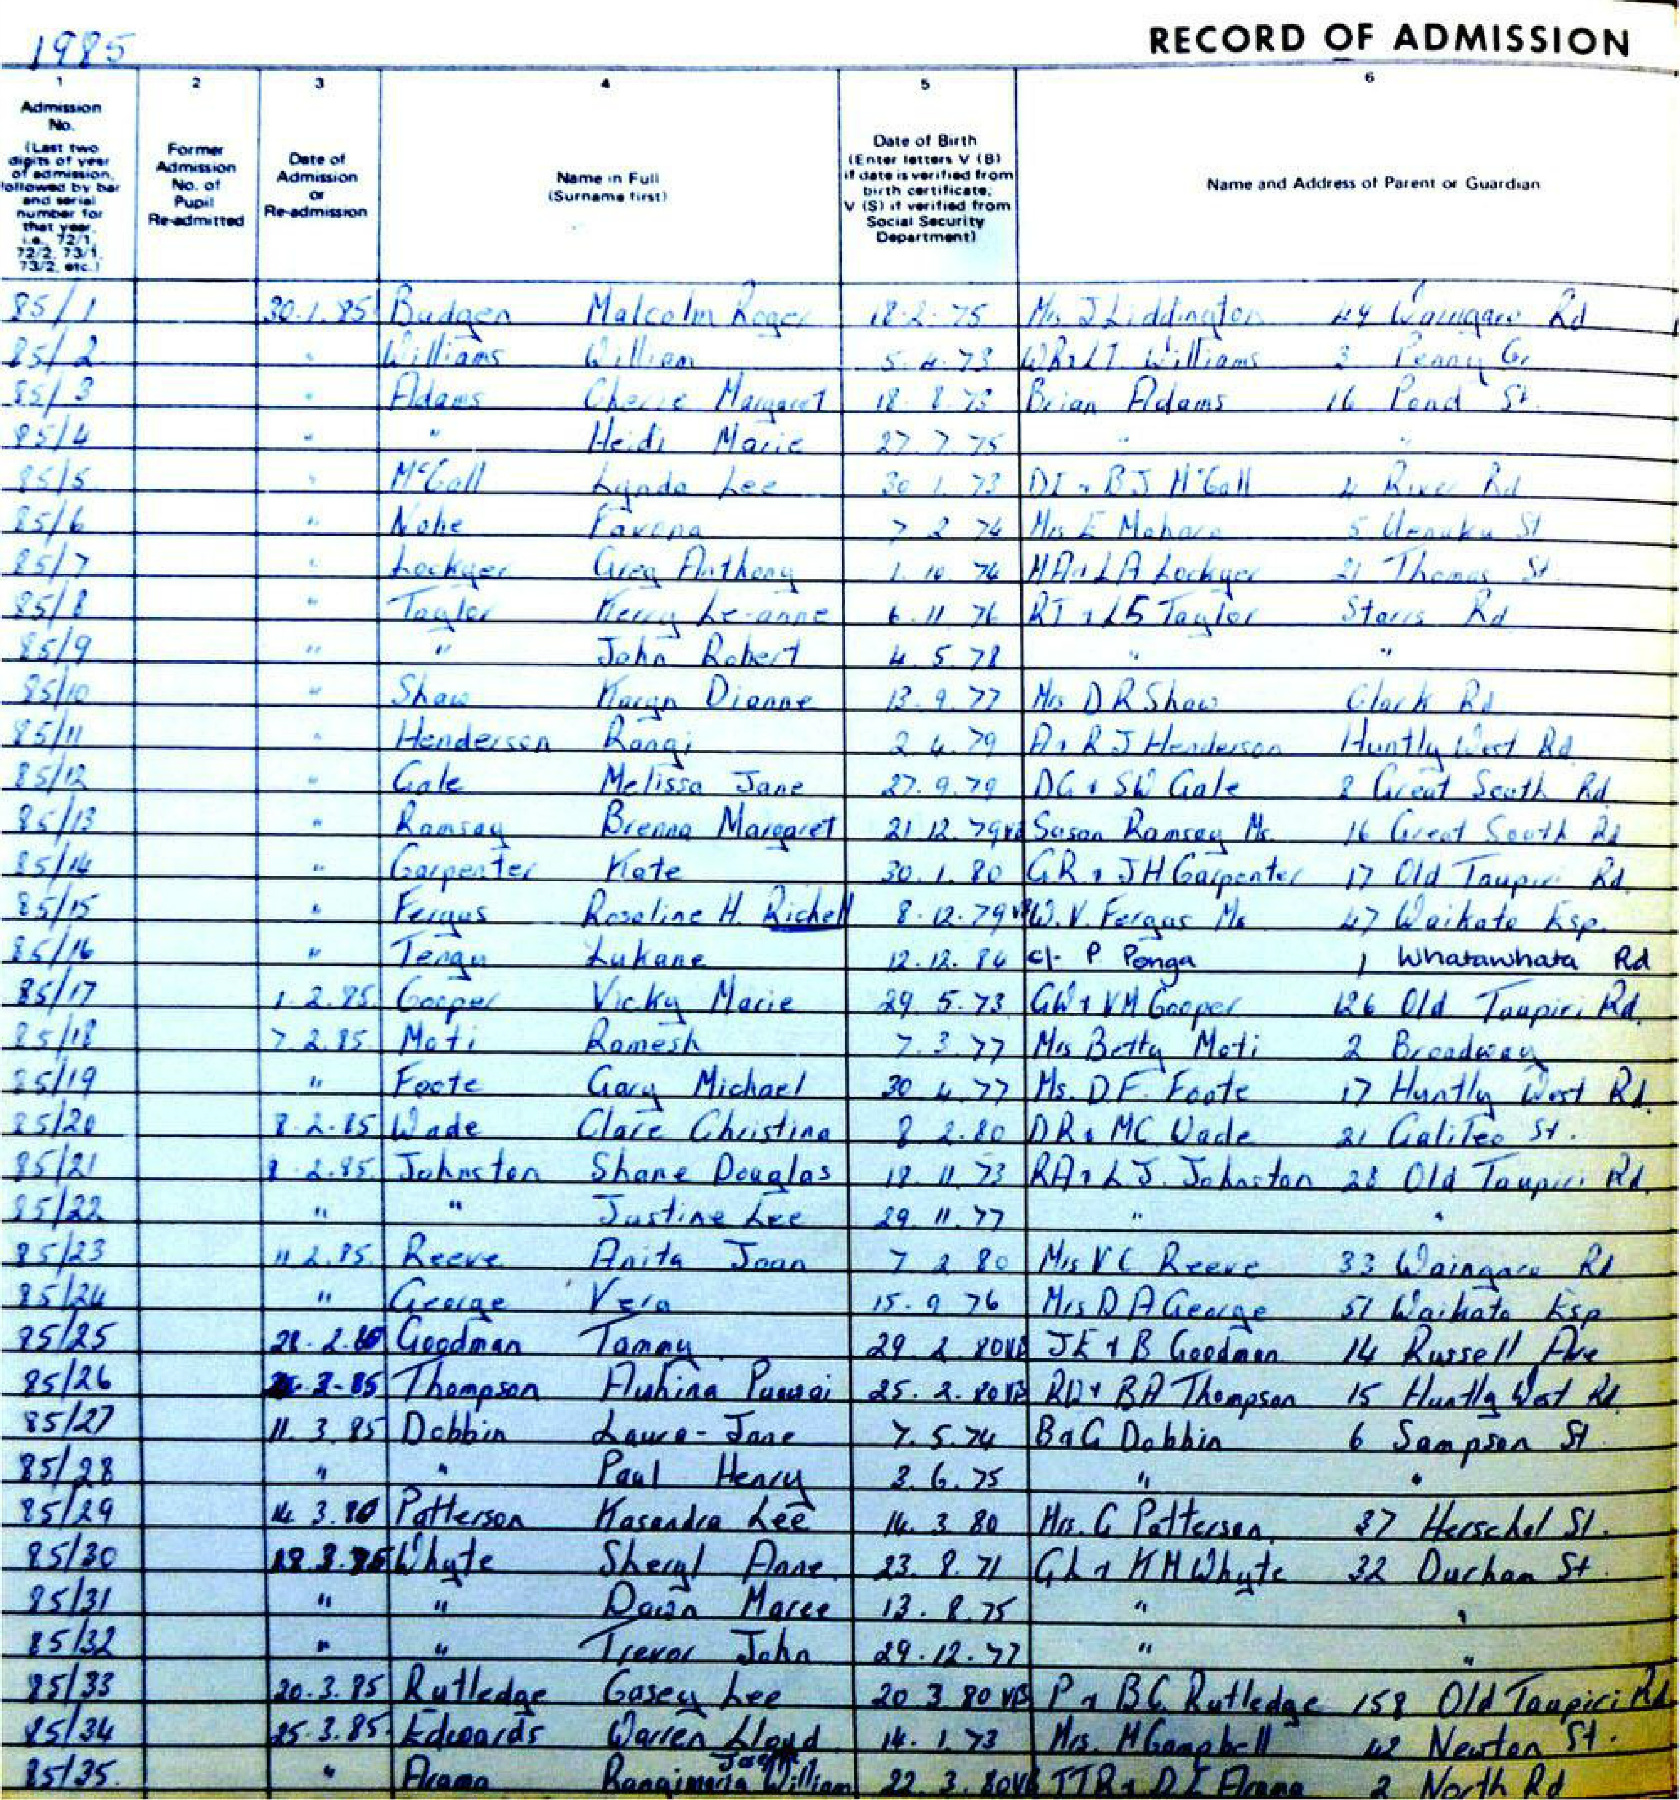 1985
RECORD OF ADMISSION
1 2 3 4 5 6
Admission No. (Last two digits of year of admission, followed by bar and serial number for that year, i.e., 72/1, 72/2, 73/1, 73/2, etc.)
Former Admission No. of Pupil Re-admitted
Date of Admission or Re-admission
Name in Full (Surname first)
Date of Birth (Enter letters V (B) if date is verified from birth certificate; V (S) if verified from Social Security Department)
Name and Address of Parent or Guardian
85/1 30.1.85 Budgen Malcolm Roger 18.2.75 Mrs J Liddington 49 Waingaro Rd
85/2 " Williams William 5.4.73 Williams 3 Penny
85/3 " Adams Cherie Margaret 18.8.73 Brian Adams 16 Pond St.
85/4 " " Heidi Marie 27.7.75 " "
85/5 " McCall Lynda Lee 30 1.73 DI & BJ McCall 4 River Rd
85/6 " Nohe 7 2 74 Mrs E 5 Uenuku St
85/7 " Lockyer Greg Anthony 1.10 74 LA Lockyer 21 Thomas St
85/8 " Taylor Kerry Le-anne 6.11 76 RT & LS Taylor Starrs Rd
85/9 " " John Robert 4.5.78 " "
85/10 " Shaw Karyn Dianne 13.9.77 Mrs D R Shaw Clark Rd
85/11 " Henderson Rangi 2.4.79 R J Henderson Huntly West Rd
85/12 " Gale Melissa Jane 27.9.79 DG & SW Gale 8 Great South Rd
85/13 " Ramsay Brenna Margaret 21 12.79 VB Susan Ramsay Ms. 16 Great South Rd
85/14 " Carpenter Kate 30.1.80 GR & JH Carpenter 17 Old Taupiri Rd.
85/15 " Fergus Roseline H. Richell 8.12.79 VB W.V. Fergus Ms 47 Waikato Esp.
85/16 " Tengu Lukane 12.12.84 c/- P Ponga 1 Whatawhata Rd
85/17 1.2.85 Cooper Vicky Marie 29.5.73 GW & VM Cooper 126 Old Taupiri Rd.
85/18 7.2.85 Moti Ramesh 7.3.77 Mrs Betty Moti 2 Broadway
85/19 " Foote Gary Michael 30 4.77 Ms. D.F. Foote 17 Huntly West Rd.
85/20 8.2.85 Wade Clare Christina 8 2.80 DR & MC Wade 21 Galileo St.
85/21 8.2.85 Johnston Shane Douglas 18.11.73 RA & LJ. Johnston 28 Old Taupiri Rd.
85/22 " " Justine Lee 29.11.77 " "
85/23 11.2.85 Reeve Anita Joan 7 2 80 Mrs V C Reeve 33 Waingaro Rd
85/24 " George Vera 15.9 76 Mrs D A George 51 Waikato Esp
85/25 Goodman Tammy 29 2 80 VB JE & B Goodman 14 Russell Ave
85/26 Thompson 25.2.80 VB RW & BA Thompson 15 Huntly West Rd.
85/27 11.3.85 Dobbin Laura-Jane 7.5.74 B & G Dobbin 6 Sampson St
85/28 " " Paul Henry 3.6.75 " "
85/29 14 3.80 Patterson Kasandra Lee 14.3 80 Mrs. G Patterson. 37 Herschel St.
85/30 Whyte Sheryl Anne 23.8.71 GL & KM Whyte 32 Durham St.
85/31 " " Dawn Maree 13.8.75 " "
85/32 " " Trevor John 29.12.77 " "
85/33 20.3.85 Rutledge Casey Lee 20 3 80 VB P & B C Rutledge 158 Old Taupiri Rd
85/34 25.3.85 Edwards Warren Lloyd 14.1.73 Mrs. M Campbell 42 Newton St.
85/35 " Arama William 22.3.80 VB Arama 2 North Rd